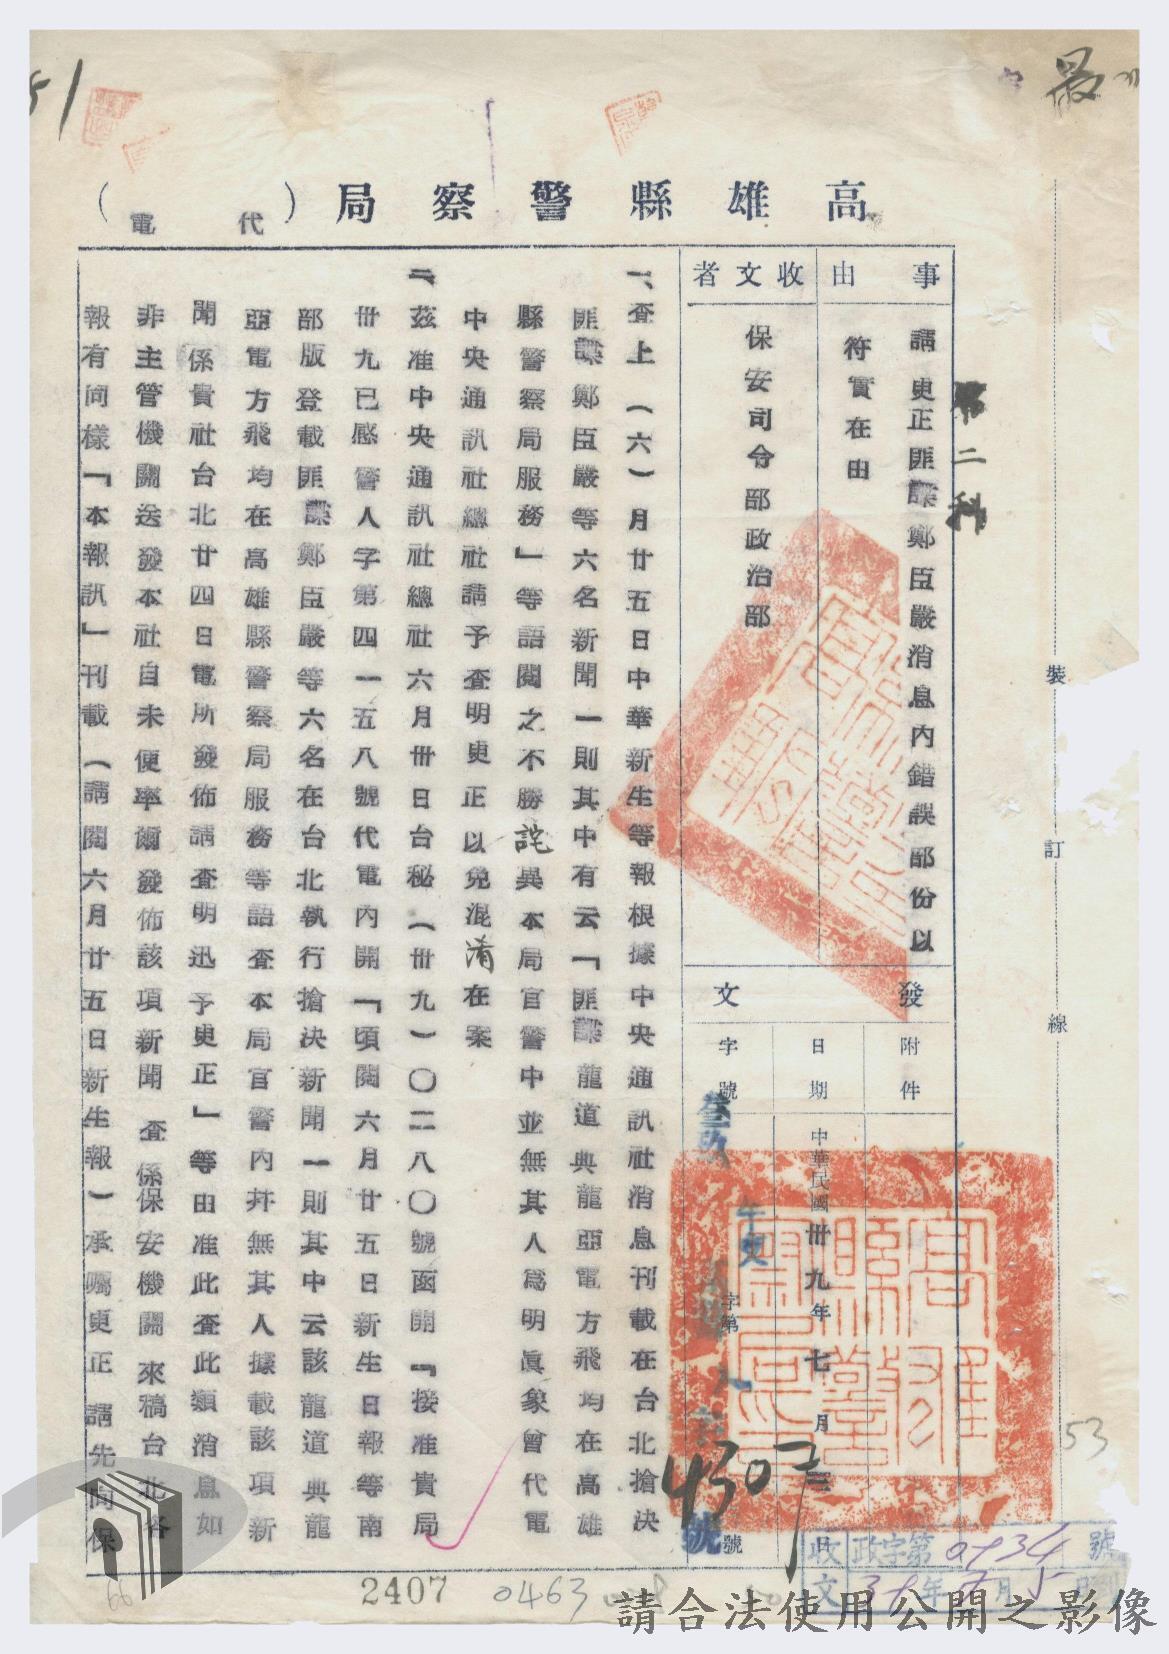 高雄縣警察局（代電）
事由
請更正匪諜鄭臣嚴消息內錯誤部份以
符實在由
收文者
保安司令部政治部
第二科
發文
附件
日期
中華民國卅九年七月三日
字號
叁玖
午
字第
4307
號
一、查上（六）月廿五日中華新生等報根據中央通訊社消息刊載在台北搶決
匪諜鄭臣嚴等六名新聞一則其中有云「匪諜龍道典龍亞電方飛均在高雄
縣警察局服務」等語閱之不勝詫異本局官警中並無其人爲明眞象曾代電
中央通訊社總社請予查明更正以免混淆在案
二、茲准中央通訊社總社六月卅日台秘（卅九）〇二八〇號函開「接准貴局
卅九已感警人字第四一五八號代電內開「頃閱六月廿五日新生日報等南
部版登載匪諜鄭臣嚴等六名在台北執行搶決新聞一則其中云該龍道典龍
亞電方飛均在高雄縣警察局服務等語查本局官警內幷無其人據載該項新
聞係貴社台北廿四日電所發佈請查明迅予更正」等由准此查此類消息如
非主管機關送發本社自未便率爾發佈該項新聞查係保安機關來稿台北各
報有同樣「本報訊」刊載（請閱六月廿五日新生報）承囑更正請先向保
裝
訂
線
53
收文
政字第0934號
39年7月5日
2407
0463
66
請合法使用公開之影像